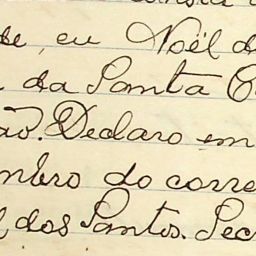 de, eu Noël d
da Santa C
ão. Declaro em
mbro do corre
dos Santos. Sec